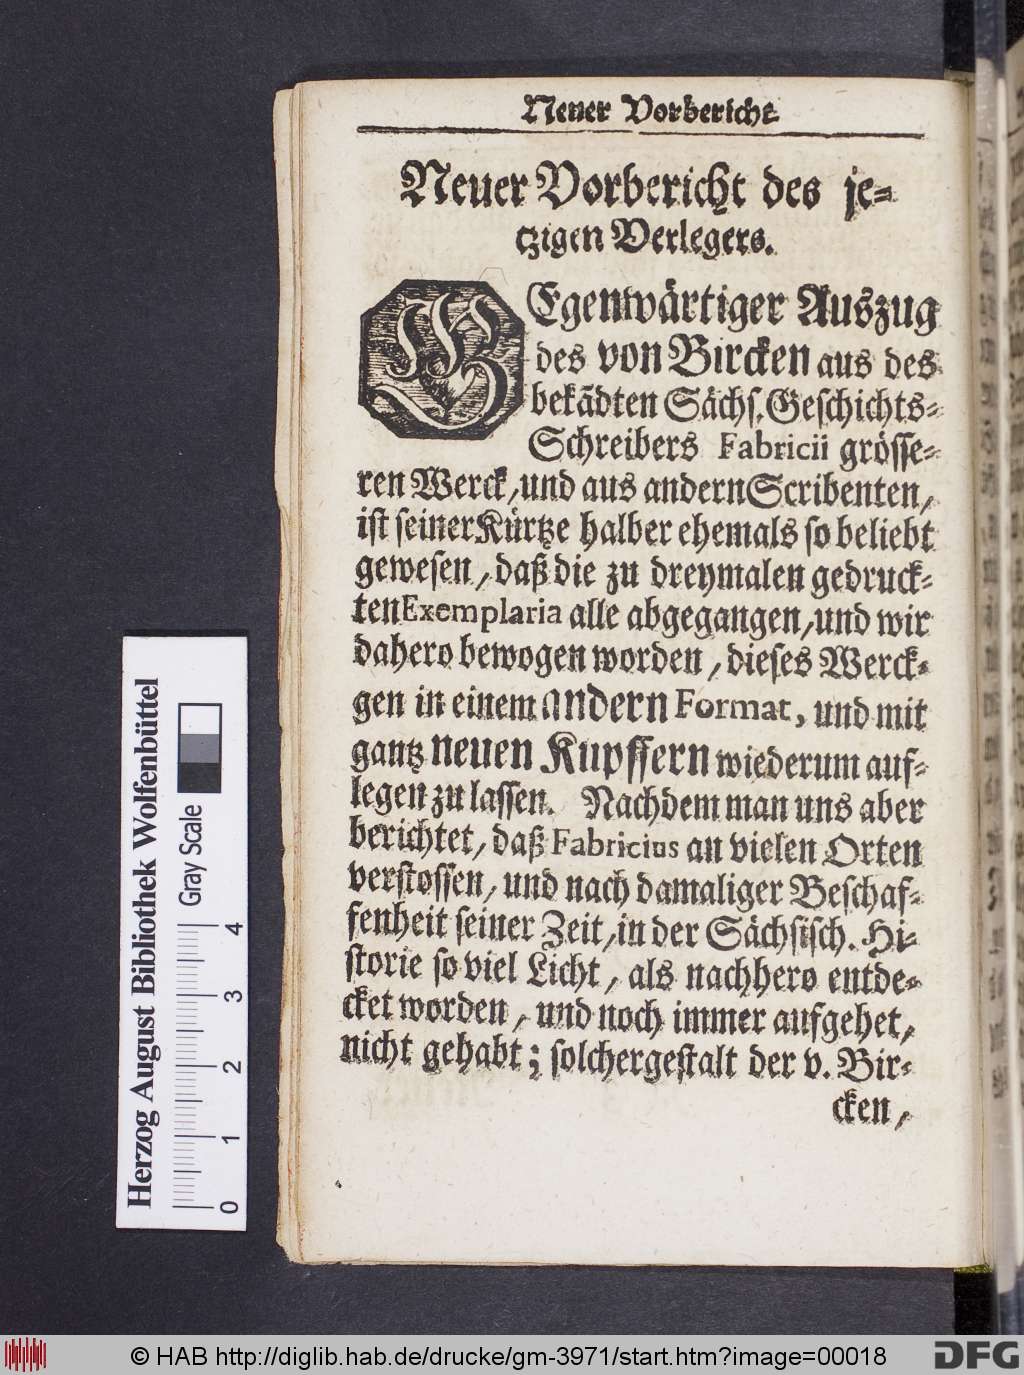 Neuer Vorbericht
Neuer Vorbericht des je⸗
tzigen Verlegers.
GEgenwärtiger Auszug
des von Bircken aus des
bekãdten Sächſ. Geſchichts⸗
Schreibers Fabricii gröſſe⸗
ren Werck, und aus andern Scribenten,
iſt ſeiner Kürtze halber ehemals ſo beliebt
geweſen, daß die zu dreymalen gedruck⸗
ten Exemplaria alle abgegangen, und wir
dahero bewogen worden, dieſes Werck⸗
gen in einem andern Format, und mit
gantz neuen Kupffern wiederum auf⸗
legen zu laſſen. Nachdem man uns aber
berichtet, daß Fabricius an vielen Orten
verſtoſſen, und nach damaliger Beſchaf⸗
fenheit ſeiner Zeit, in der Sächſiſch. Hi⸗
ſtorie ſo viel Licht, als nachhero entde⸗
cket worden, und noch immer aufgehet,
nicht gehabt; ſolchergeſtalt der v. Bir⸗
cken,
Herzog August Bibliothek Wolfenbüttel
Gray Scale
0 1 2 3 4
© HAB http://diglib.hab.de/drucke/gm-3971/start.htm?image=00018
DFG